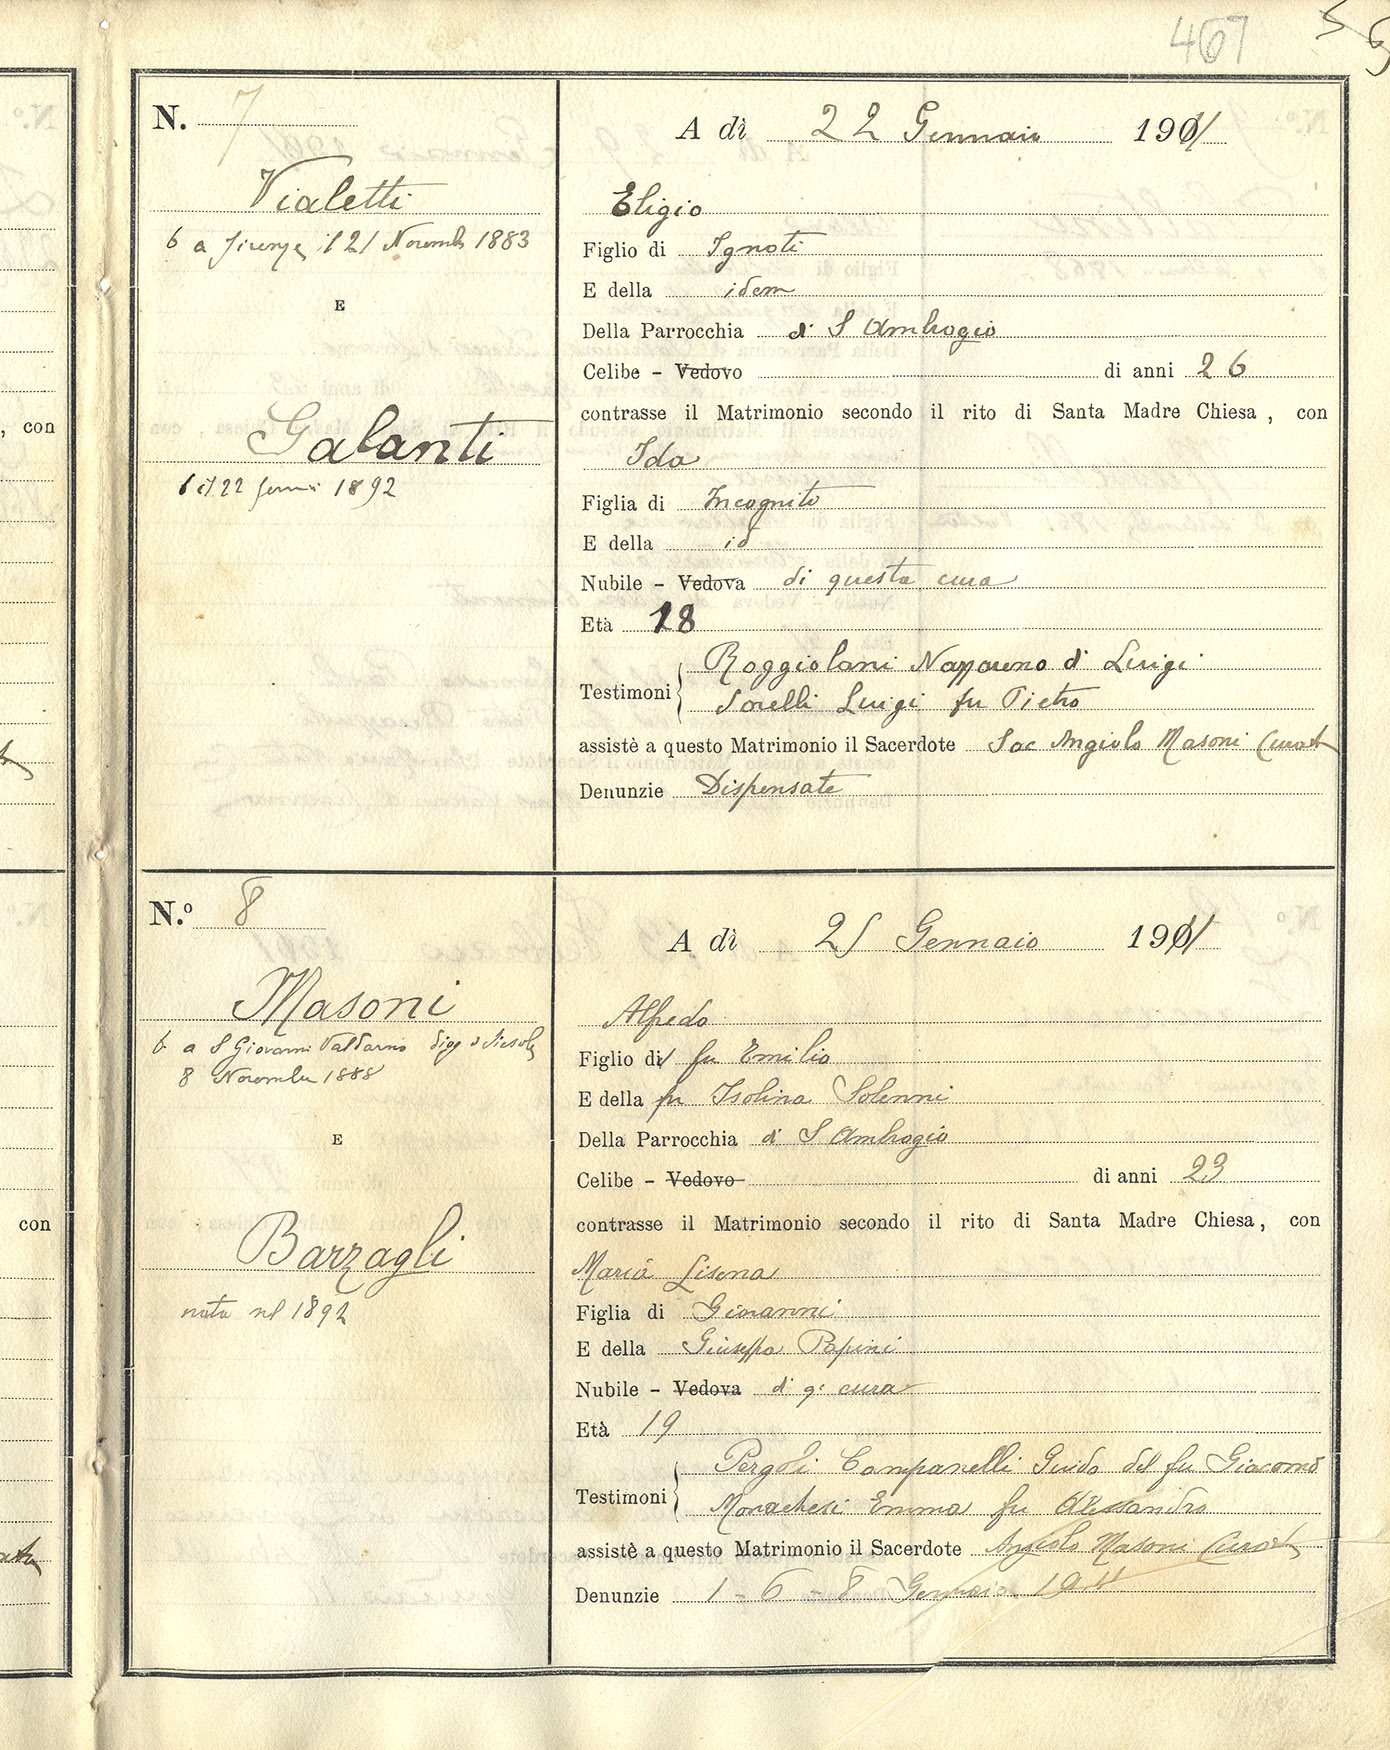 467
N. 7
A dì 22 Gennaio 1901/
Vialetti
b a Firenze il 21 Novemb 1883
Eligio
Figlio di Ignoti
E della idem
E
Della Parrocchia di S Ambrogio
Celibe - Vedovo di anni 26
contrasse il Matrimonio secondo il rito di Santa Madre Chiesa, con
Galanti
b il 22 1892
Ida
Figlia di Incognito
E della id
Nubile - Vedova di questa cura
Età 18
Testimoni Roggiolani Nazzareno di Luigi
Sorelli Luigi fu Pietro
assistè a questo Matrimonio il Sacerdote Sac Angiolo Masoni Curat
Denunzie Dispensate
, con
N.º 8
A dì 25 Gennaio 1901/
Masoni
b a S Giovanni Valdarno dioc di Fiesole
8 Novembre 1888
Alfredo
Figlio di fu Emilio
E della fu Isolina Solenni
E
Della Parrocchia di S Ambrogio
Celibe - Vedovo di anni 23
contrasse il Matrimonio secondo il rito di Santa Madre Chiesa, con
Barzagli
nata nel 1892
Maria Lisena
Figlia di Giovanni
E della Giuseppa Papini
Nubile - Vedova di q. cura
Età 19
Testimoni Pergoli Campanelli Guido del fu Giacomo
Monachesi Emma fu Alessandro
assistè a questo Matrimonio il Sacerdote Angiolo Masoni Curat
Denunzie 1 - 6 - 8 Gennaio 1911
con